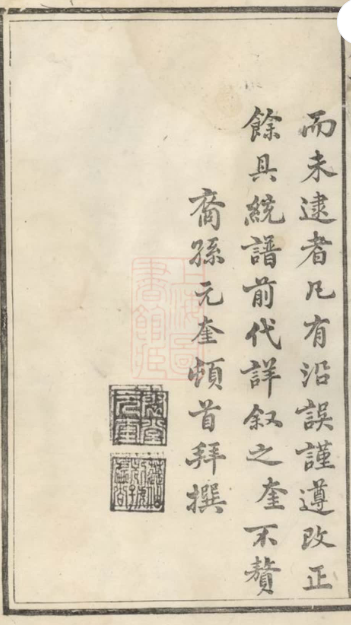 而未逮者凡有沿誤謹遵改正
餘具統譜前代詳叙之奎不贅
裔孫元奎頓首拜撰
上海圖
書館藏